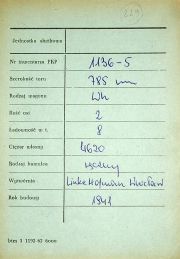 229
Jednostka służbowa
Nr inwentarza PKP 1136-5
Szerokość toru 785 mm
Rodzaj wagonu Wh
Ilość osi 2
Ładowność w t. 8
Ciężar własny 4620
Rodzaj hamulca ręczny
Wytwórnia Linke Hofmann Wrocław
Rok budowy 1941